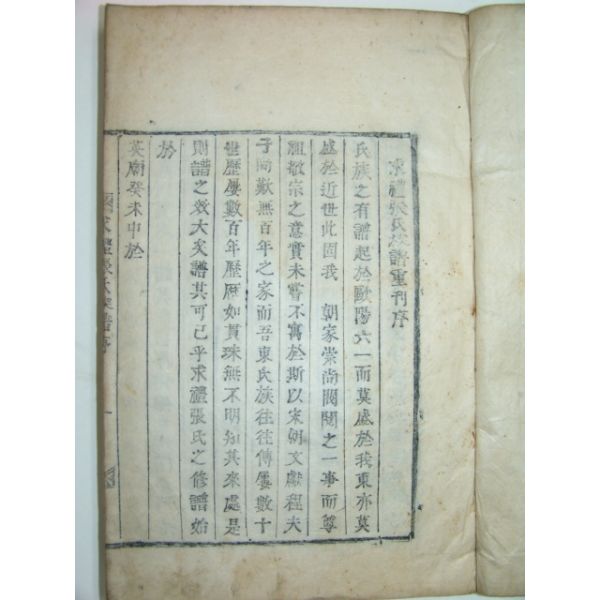 求禮張氏族譜重刊序
氏族之有譜起於歐陽六一而莫盛於我東亦莫
盛於近世此固我 朝家崇尚閥閱之一事而尊
祖敬宗之意實未嘗不寓於斯以宋朝文獻程夫
子尚歎無百年之家而吾東氏族往往傳屢數十
世歷屢數百年歷歷如貫珠無不明知其來處是
則譜之效大矣譜其可已乎求禮張氏之修譜始
於
英廟癸未中於
求禮張氏族譜序
一